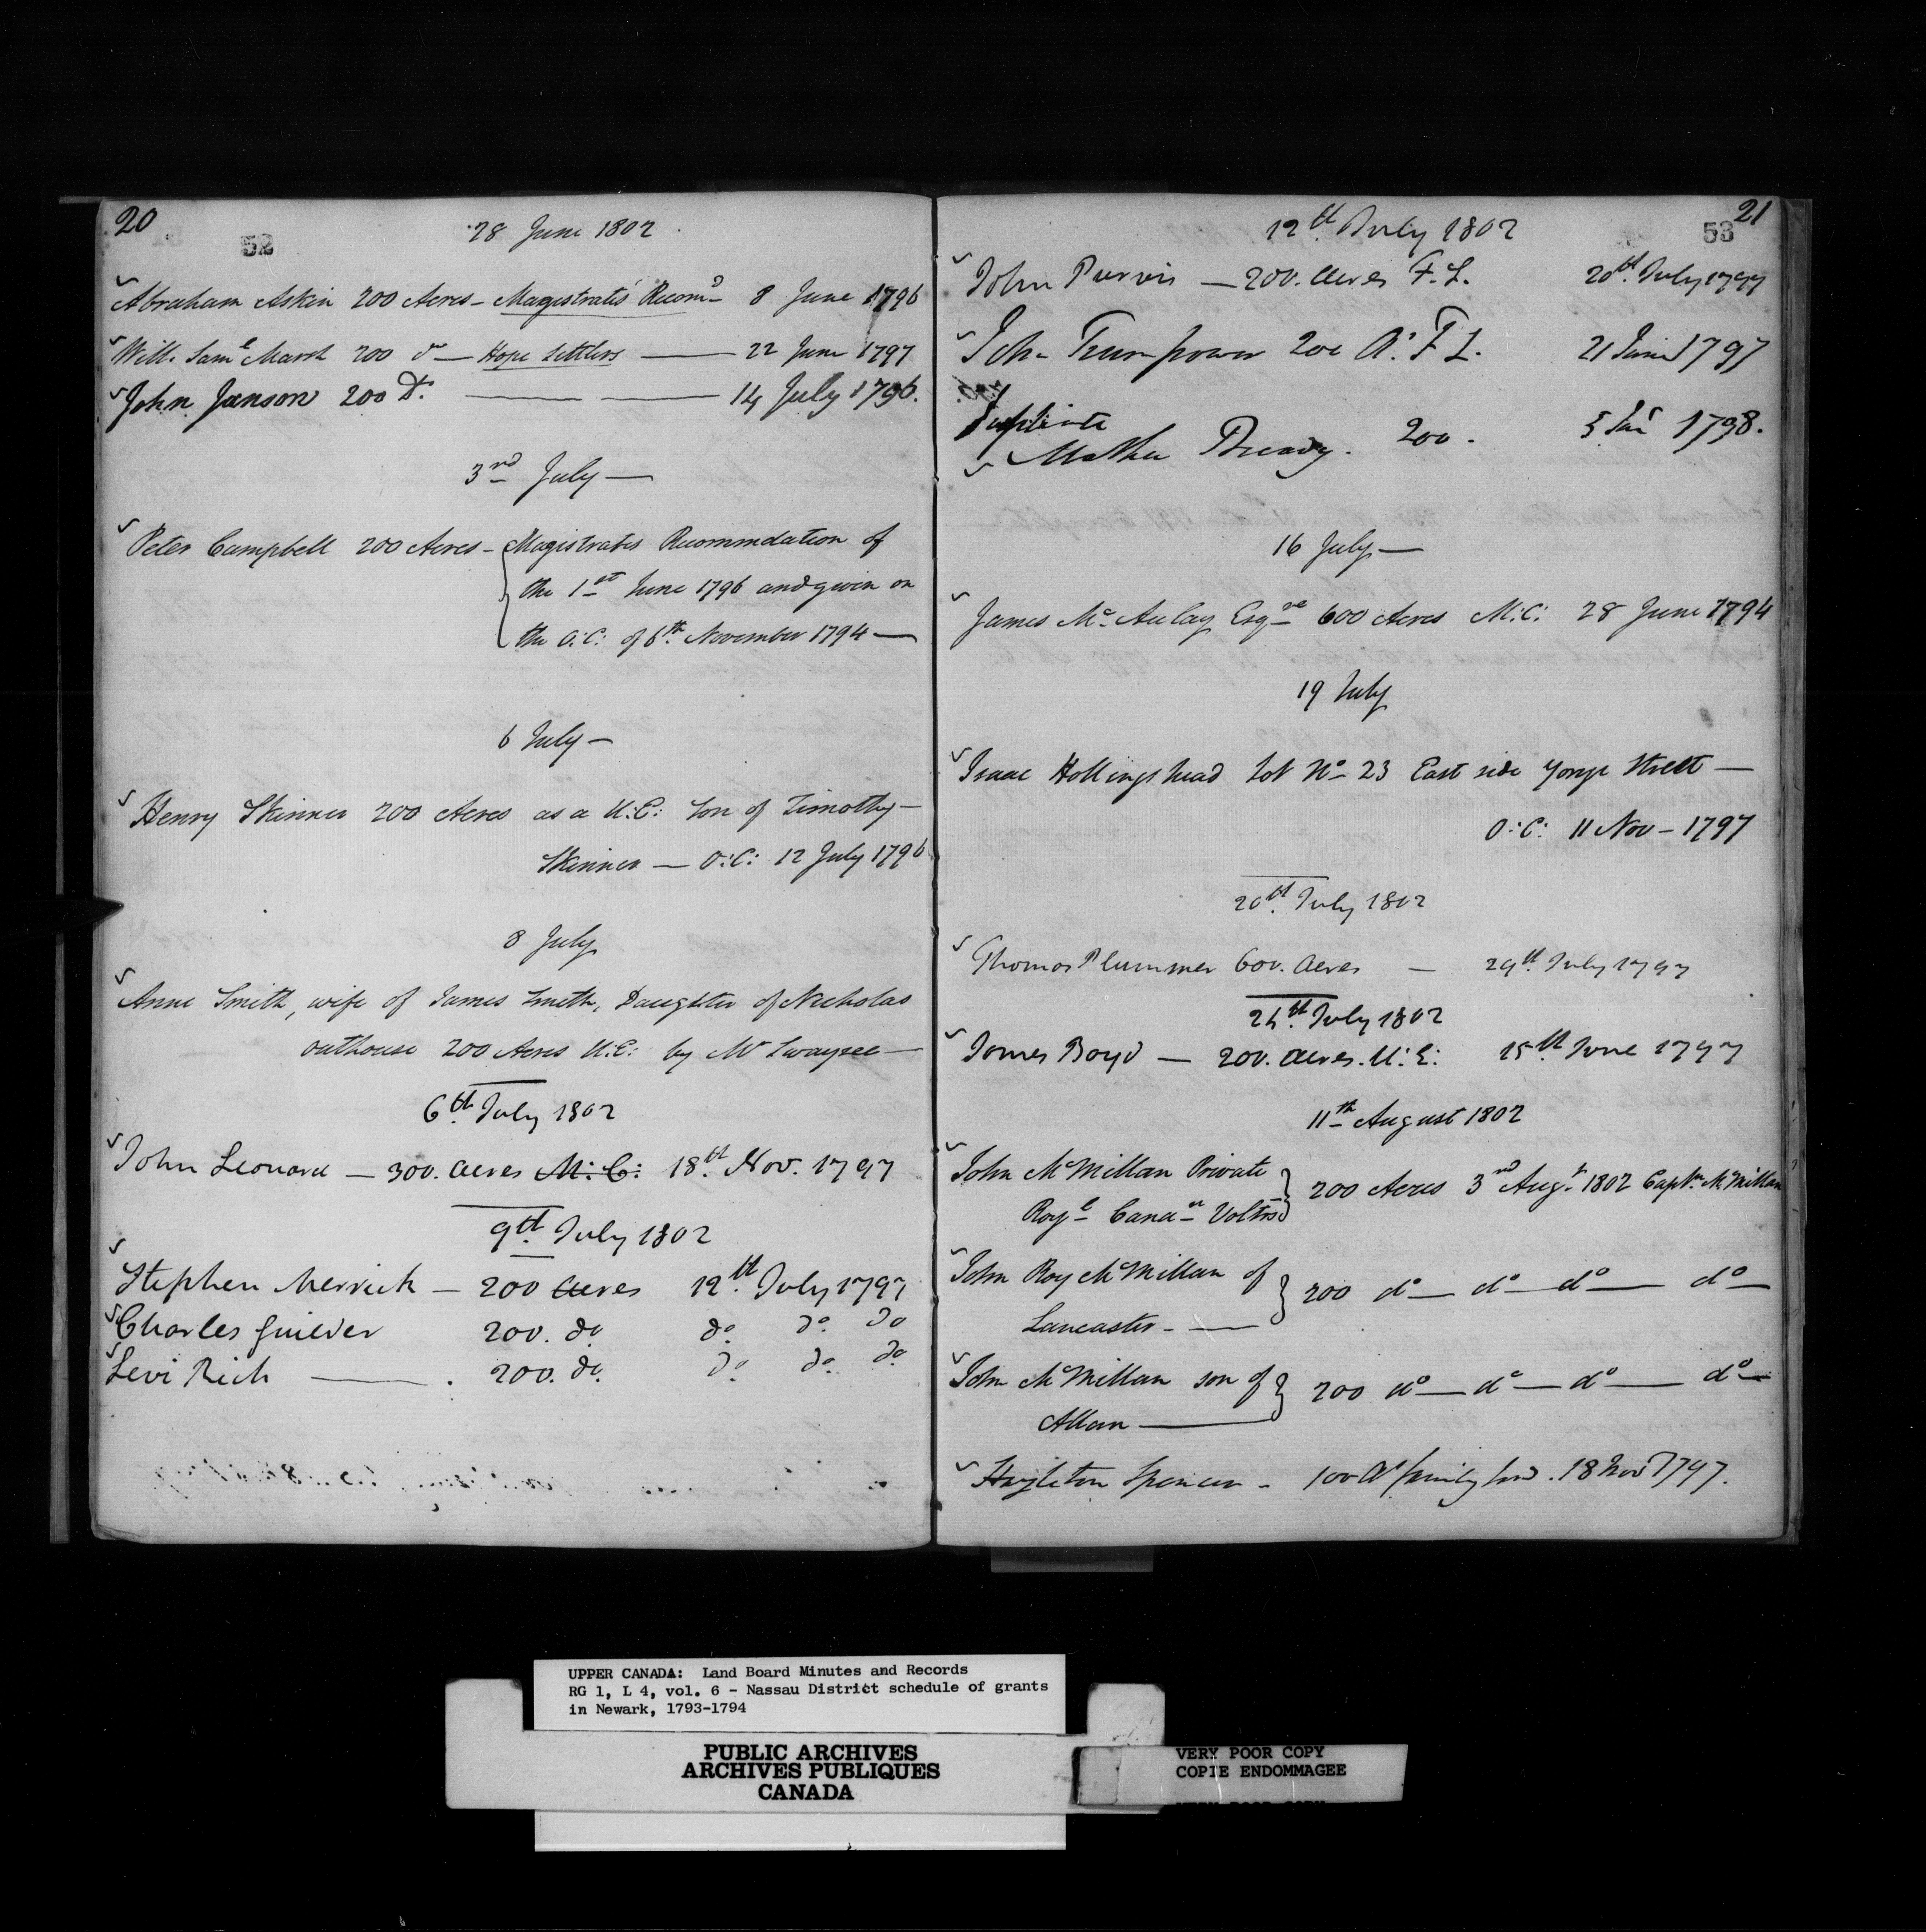 20
52
28 June 1802
Abraham Askin 200 Acres - Magistrates Recomd 8 June 1796
Will. Saml Marsh 200 do - Hope Settlers - 22 June 1797
John Janson 200 Do. - 14 July 1796.
3rd July -
Peter Campbell 200 Acres - Magistrates Recommdation of
the 1st June 1796 and given on
the O.C: of 6th November 1794 -
6 July -
Henry Skinner 200 Acres as a U.E: Son of Timothy -
Skinner - O:C: 12 July 1796
8 July
Anne Smith, wife of James Smith, Daughter of Nicholas
Outhouse 200 Acres U.E: by Mr Swayzee -
6th July 1802
John Leonard - 300. Acres M:C: 18th Nov. 1797
9th July 1802
Stephen Merrick - 200 Acres 12th July 1797
Charles Guilder 200. do do do do
Levi Rich - 200. do. do do do
21
53
12th July 1802
John Purvis - 200. Acres F.L. 20th July 1797
John Trumpower 200 A. F L. 21 June 1797
Duplicate
Mathew 200. 5 1798.
16 July -
James McAulay Esqre 600 Acres M.C: 28 June 1794
19 July
Isaac Hollingshead Lot No 23 East side Yonge Street -
O:C: 11 Nov - 1797
20th July 1802
Thomas Plummer 600. Acres - 29th July 1797
24th July 1802
James Boyd - 200. Acres. U:E: 15th June 1797
11th August 1802
John McMillan Private
Royl Canan Voltrs } 200 Acres 3rd Augt 1802 Captn McMillan
John Roy McMillan of
Lancaster - } 200 do - do - do - do -
John McMillan son of
Allan - } 200 do - do - do - do -
Hazleton Spencer - 100 As family land. 18 Nov 1797.
UPPER CANADA: Land Board Minutes and Records
RG 1, L 4, vol. 6 - Nassau District schedule of grants
in Newark, 1793-1794
PUBLIC ARCHIVES
ARCHIVES PUBLIQUES
CANADA
VERY POOR COPY
COPIE ENDOMMAGEE